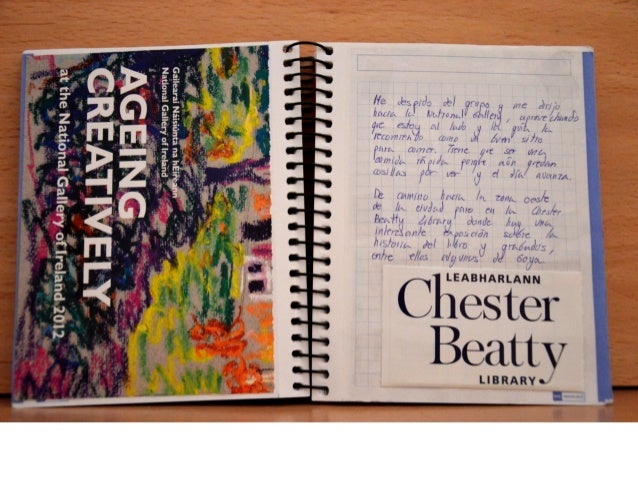 Gailearaí Náisiúnta na hÉireann
National Gallery of Ireland
AGEING
CREATIVELY
at the National Gallery of Ireland 2012
Me despido del grupo y me dirijo
hacia la National Gallery, aprovechando
que estoy al lado y la guía la
recomienda como un buen sitio
para comer. Tiene que ser una
comida rápida porque aún quedan
cosillas por ver y el día avanza.
De camino hacia la zona oeste
de la ciudad paro en la Chester
Beatty Library donde hay una
interesante exposición sobre la
historia del libro y grabados,
entre ellos algunos de Goya.
LEABHARLANN
Chester
Beatty
LIBRARY